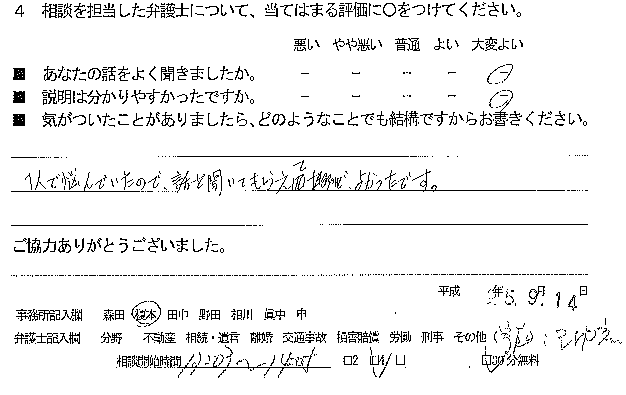 4 相談を担当した弁護士について、当てはまる評価に○をつけてください。
悪い やや悪い 普通 よい 大変よい
■ あなたの話をよく聞きましたか。 － － － － －
■ 説明は分かりやすかったですか。 － － － － －
■ 気がついたことがありましたら、どのようなことでも結構ですからお書きください。
1人で悩んでいたので、話を聞いてもらえ よかったです。
ご協力ありがとうございました。
平成 25年 9月 14日
事務所記入欄 森田 榎本 田中 野田 相川 眞中 中
弁護士記入欄 分野 不動産 相続・遺言 離婚 交通事故 損害賠償 労働 刑事 その他
相談開始時間 □2 □1 □ □30分無料